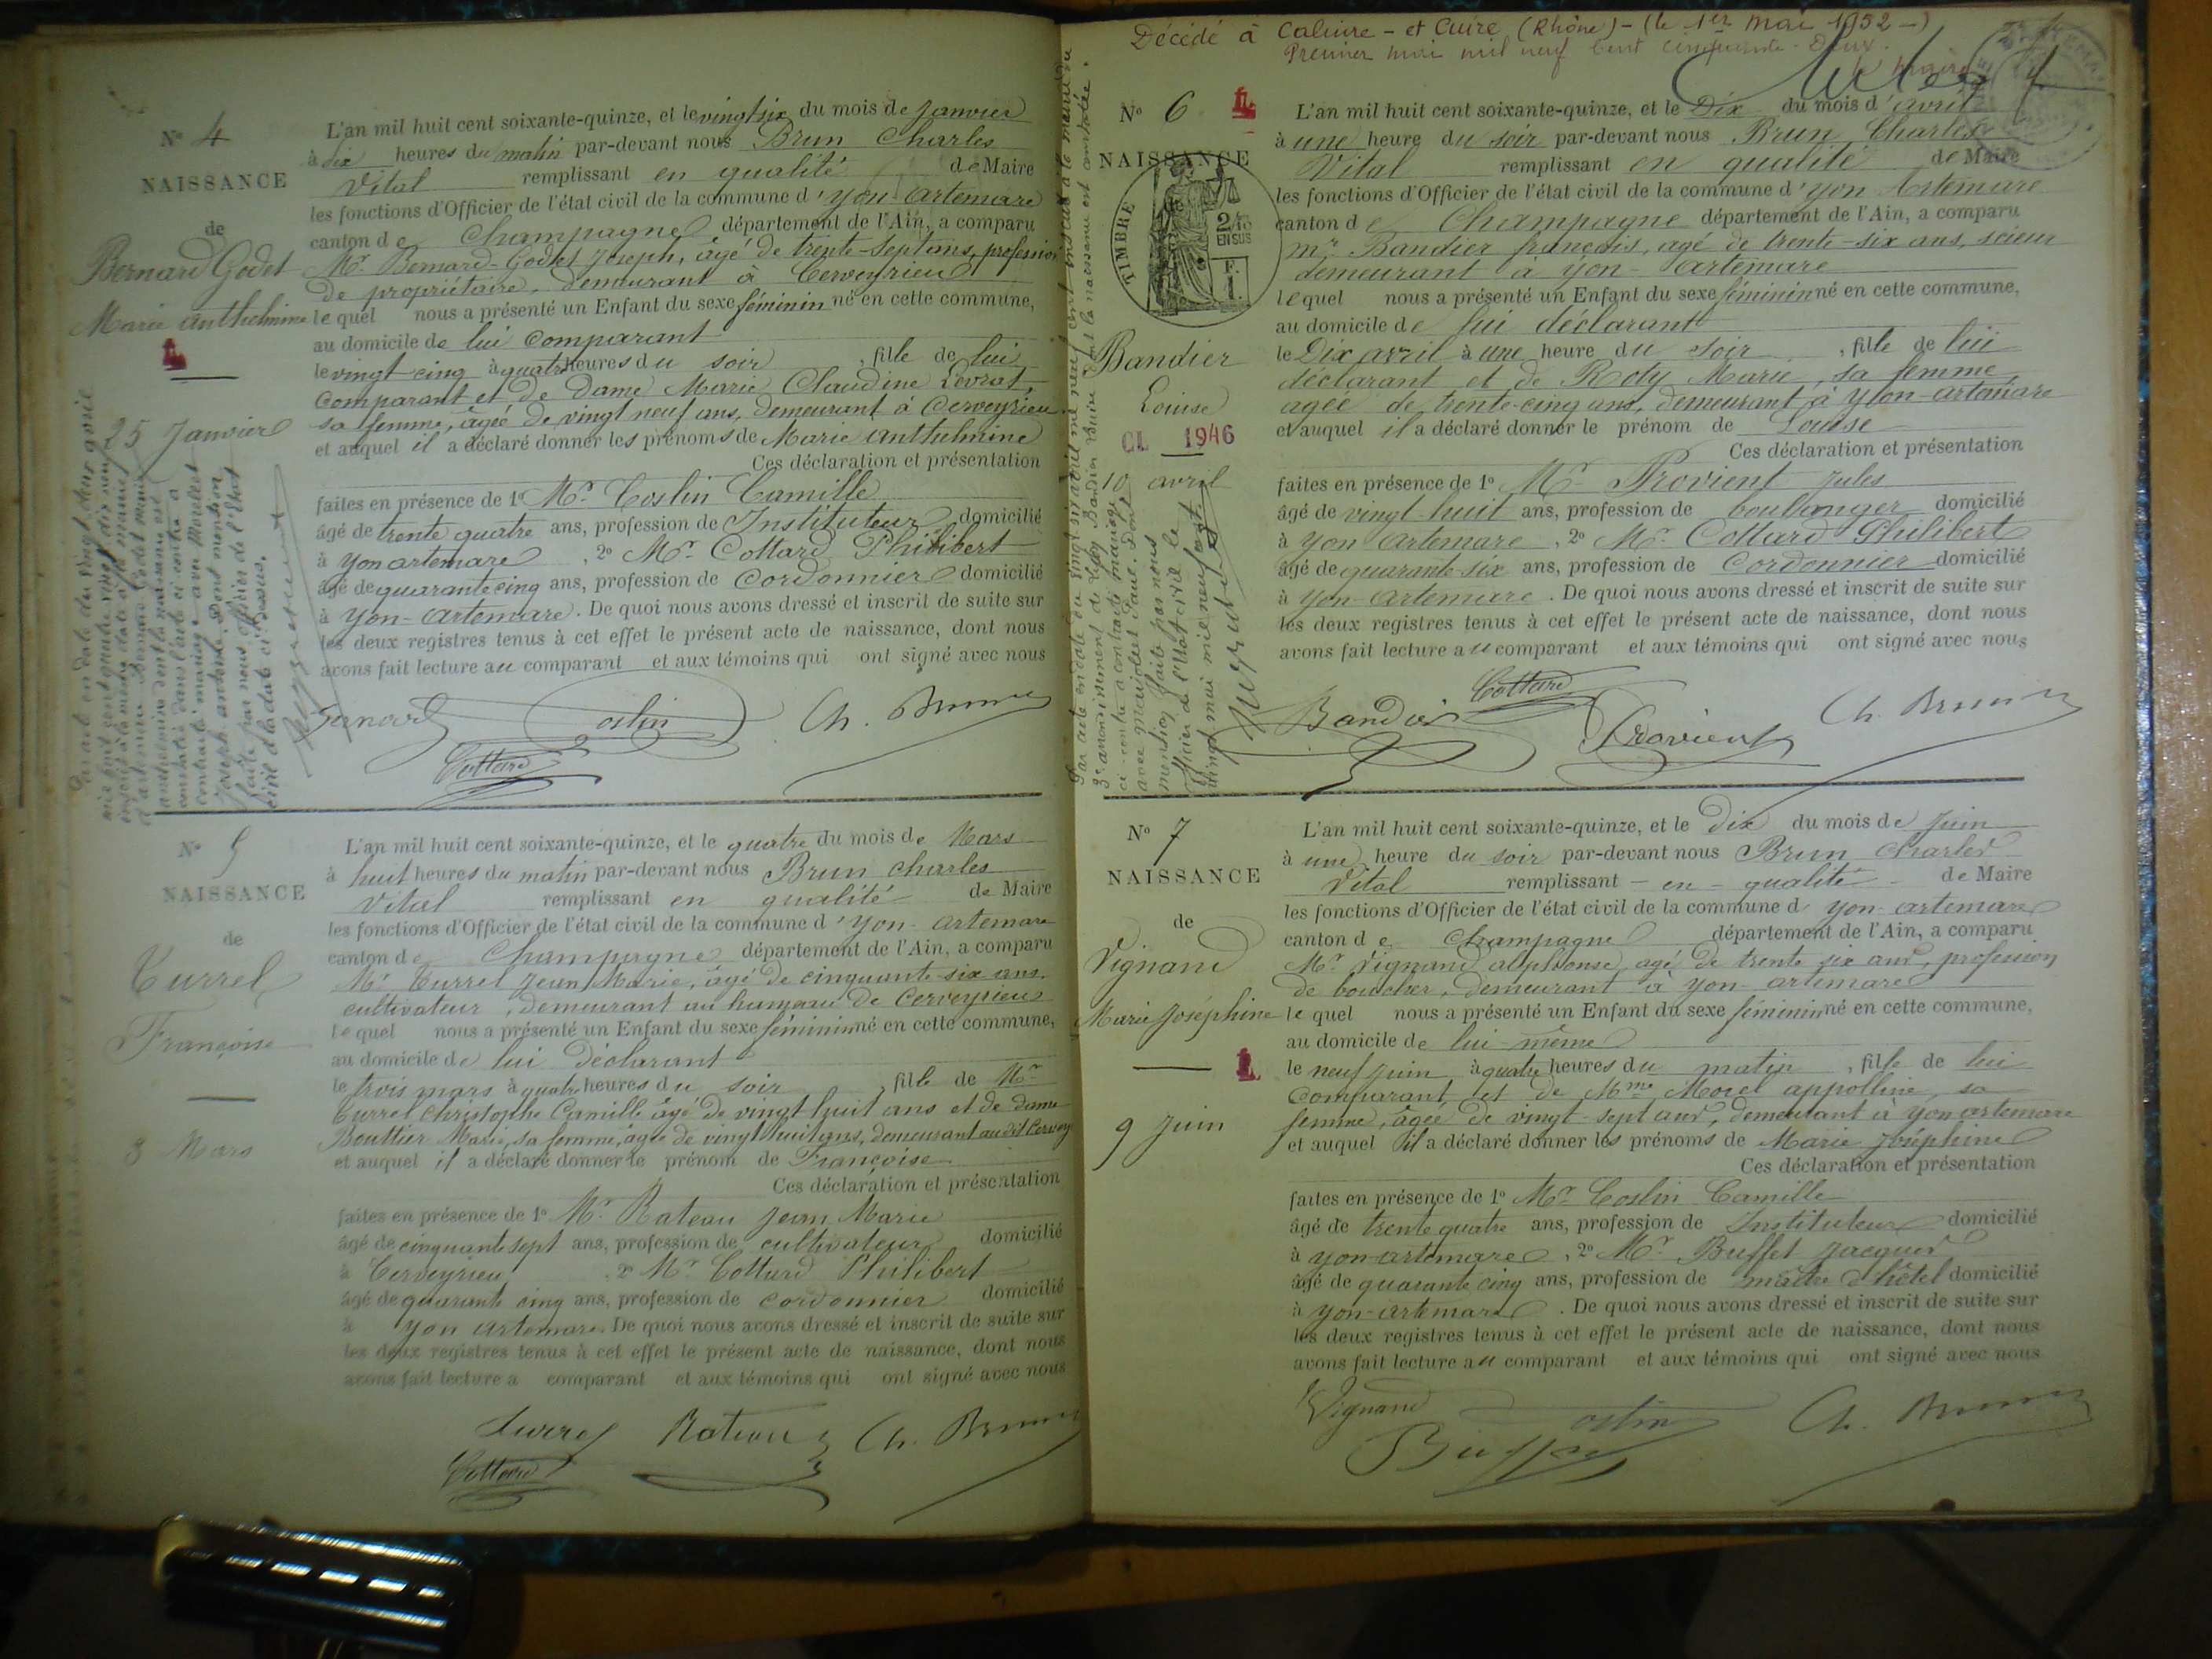 N° 4
NAISSANCE
de
Bernard Godet
Marie Anthelmine
25 Janvier
L'an mil huit cent soixante-quinze, et le vingt six du mois de Janvier
à dix heures du matin par-devant nous Brun Charles
Vital remplissant en qualité de Maire
les fonctions d'Officier de l'état civil de la commune d'yon artemare
canton de Champagne département de l'Ain, a comparu
Mr. Bernard-Godet Joseph, âgé de trente-sept ans, profession
de propriétaire, demeurant à Cerveyrieu
lequel nous a présenté un Enfant du sexe féminin né en cette commune,
au domicile de lui comparant
le vingt cinq à quatre heures du soir, fille de lui
comparant et de Dame Marie Claudine Levrat,
sa femme, âgée de vingt neuf ans, demeurant à Cerveyrieu
et auquel il a déclaré donner les prénoms de Marie anthelmine
Ces déclaration et présentation
faites en présence de 1° Mr Coslin Camille
âgé de trente quatre ans, profession de Instituteur domicilié
à yon artemare, 2° Mr Cottard Philibert
âgé de quarante cinq ans, profession de Cordonnier domicilié
à yon-artemare. De quoi nous avons dressé et inscrit de suite sur
les deux registres tenus à cet effet le présent acte de naissance, dont nous
avons fait lecture au comparant et aux témoins qui ont signé avec nous
Coslin Ch. Brun
Cottard
N° 5
NAISSANCE
de
Turrel
Françoise
3 Mars
L'an mil huit cent soixante-quinze, et le quatre du mois de Mars
à huit heures du matin par-devant nous Brun Charles
Vital remplissant en qualité de Maire
les fonctions d'Officier de l'état civil de la commune d'yon-artemare
canton de Champagne département de l'Ain, a comparu
Mr Turrel Jean Marie, âgé de cinquante-six ans,
cultivateur, demeurant au hameau de Cerveyrieu
lequel nous a présenté un Enfant du sexe féminin né en cette commune,
au domicile de lui déclarant
le trois mars à quatre heures du soir, fille de Mr
Turrel Christophe Camille âgé de vingt huit ans et de dame
Bouttier Marie, sa femme, âgée de vingt huit ans, demeurant audit Cervey
et auquel il a déclaré donner le prénom de Françoise
Ces déclaration et présentation
faites en présence de 1° Mr Rateau Jean Marie
âgé de cinquante sept ans, profession de cultivateur domicilié
à Cerveyrieu, 2° Mr Cottard Philibert
âgé de quarante cinq ans, profession de cordonnier domicilié
à yon artemare. De quoi nous avons dressé et inscrit de suite sur
les deux registres tenus à cet effet le présent acte de naissance, dont nous
avons fait lecture a comparant et aux témoins qui ont signé avec nous
Turrel Rateau Ch. Brun
Cottard
Décédé à Caluire-et Cuire (Rhône)-(le 1er Mai 1952-)
Premier mai mil neuf cent cinquante-Deux.
le Maire
N° 6
NAISSANCE
TIMBRE
2/10
EN SUS
Bandier
Louise
CL 1946
10 avril
L'an mil huit cent soixante-quinze, et le Dix du mois d'avril
à une heure du soir par-devant nous Brun Charles
Vital remplissant en qualité de Maire
les fonctions d'Officier de l'état civil de la commune d'yon Artemare
canton de Champagne département de l'Ain, a comparu
mr Bandier françois, agé de trente-six ans, scieur
demeurant à yon-artemare
lequel nous a présenté un Enfant du sexe féminin né en cette commune,
au domicile de lui déclarant
le Dix avril à une heure du soir, fille de lui
déclarant et de Roty Marie, sa femme
agée de trente-cinq ans, demeurant à yon-artemare
et auquel il a déclaré donner le prénom de Louise
Ces déclaration et présentation
faites en présence de 1° Mr Provient Jules
âgé de vingt-huit ans, profession de boulanger domicilié
à yon artemare, 2° Mr Cottard Philibert
âgé de quarante-six ans, profession de Cordonnier domicilié
à yon-Artemare. De quoi nous avons dressé et inscrit de suite sur
les deux registres tenus à cet effet le présent acte de naissance, dont nous
avons fait lecture au comparant et aux témoins qui ont signé avec nous
Cottard
Bandier Provient Ch. Brun
N° 7
NAISSANCE
de
Vignand
Marie Joséphine
9 Juin
L'an mil huit cent soixante-quinze, et le Dix du mois de Juin
à une heure du soir par-devant nous Brun Charles
Vital remplissant - en - qualité - de Maire
les fonctions d'Officier de l'état civil de la commune d yon-artemare
canton de Champagne département de l'Ain, a comparu
Mr Vignand alphonse, agé de trente six ans, profession
de boucher, demeurant à yon-artemare
lequel nous a présenté un Enfant du sexe féminin né en cette commune,
au domicile de lui-même
le neuf juin à quatre heures du matin, fille de lui
comparant et de Mme Morel appolline, sa
femme, âgée de vingt-sept ans, demeurant à yon artemare
et auquel il a déclaré donner les prénoms de Marie Joséphine
Ces déclaration et présentation
faites en présence de 1° Mr Coslin Camille
âgé de trente quatre ans, profession de Instituteur domicilié
à yon-artemare, 2° Mr Buffet Jacques
âgé de quarante cinq ans, profession de maître d'hôtel domicilié
à yon-artemare. De quoi nous avons dressé et inscrit de suite sur
les deux registres tenus à cet effet le présent acte de naissance, dont nous
avons fait lecture au comparant et aux témoins qui ont signé avec nous
Vignand Coslin Ch. Brun
Buffet